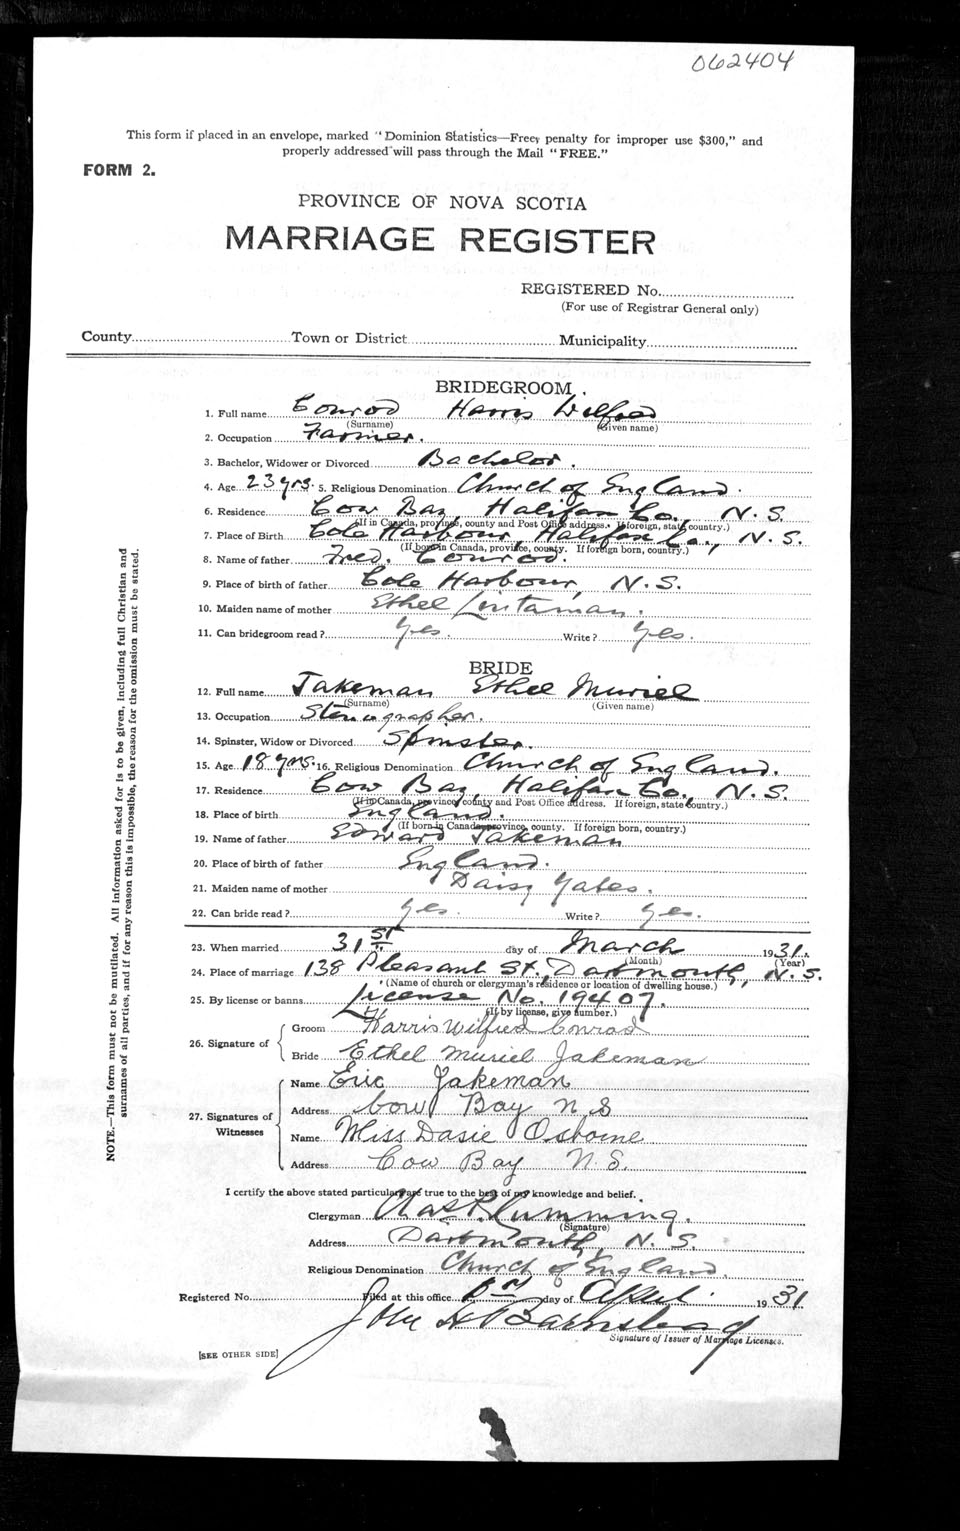 062404
This form if placed in an envelope, marked "Dominion Statistics—Free, penalty for improper use $300," and
properly addressed will pass through the Mail "FREE."
FORM 2.
PROVINCE OF NOVA SCOTIA
MARRIAGE REGISTER
REGISTERED No.
(For use of Registrar General only)
County Town or District Municipality
BRIDEGROOM.
1. Full name Conrod Harris Wilfred
(Surname) (Given name)
2. Occupation Farmer.
3. Bachelor, Widower or Divorced Bachelor.
4. Age 23 yrs. 5. Religious Denomination Church of England.
6. Residence Cow Bay, Halifax Co., N. S.
(If in Canada, province, county and Post Office address. If foreign, state country.)
7. Place of Birth Cole Harbour, Halifax Co., N. S.
(If born in Canada, province, county. If foreign born, country.)
8. Name of father Fred. Conrod.
9. Place of birth of father Cole Harbour, N. S.
10. Maiden name of mother Ethel Lintaman.
11. Can bridegroom read? Yes. Write? Yes.
BRIDE
12. Full name Jakeman Ethel Muriel
(Surname) (Given name)
13. Occupation Stenographer.
14. Spinster, Widow or Divorced Spinster.
15. Age 18 yrs. 16. Religious Denomination Church of England.
17. Residence Cow Bay, Halifax Co., N. S.
(If in Canada, province, county and Post Office address. If foreign, state country.)
18. Place of birth England.
(If born in Canada, province, county. If foreign born, country.)
19. Name of father Edward Jakeman
20. Place of birth of father England.
21. Maiden name of mother Daisy Yates.
22. Can bride read? Yes. Write? Yes.
23. When married 31st day of March 1931.
(Month) (Year)
24. Place of marriage 138 Pleasant St., Dartmouth, N. S.
(Name of church or clergyman's residence or location of dwelling house.)
25. By license or banns License No. 19407.
(If by license, give number.)
26. Signature of Groom Harris Wilfred Conrod
Bride Ethel Muriel Jakeman
27. Signatures of Witnesses Name Eric Jakeman
Address Cow Bay N S
Name Miss Dasie Osborne
Address Cow Bay N. S.
I certify the above stated particulars are true to the best of my knowledge and belief.
Clergyman Chas R. Cumming.
(Signature)
Address Dartmouth, N. S.
Religious Denomination Church of England.
Registered No. Filed at this office day of April 1931
John H Barnstead
Signature of Issuer of Marriage Licenses.
[SEE OTHER SIDE]
NOTE.—This form must not be mutilated. All information asked for is to be given, including full Christian and
surnames of all parties, and if for any reason this is impossible, the reason for the omission must be stated.